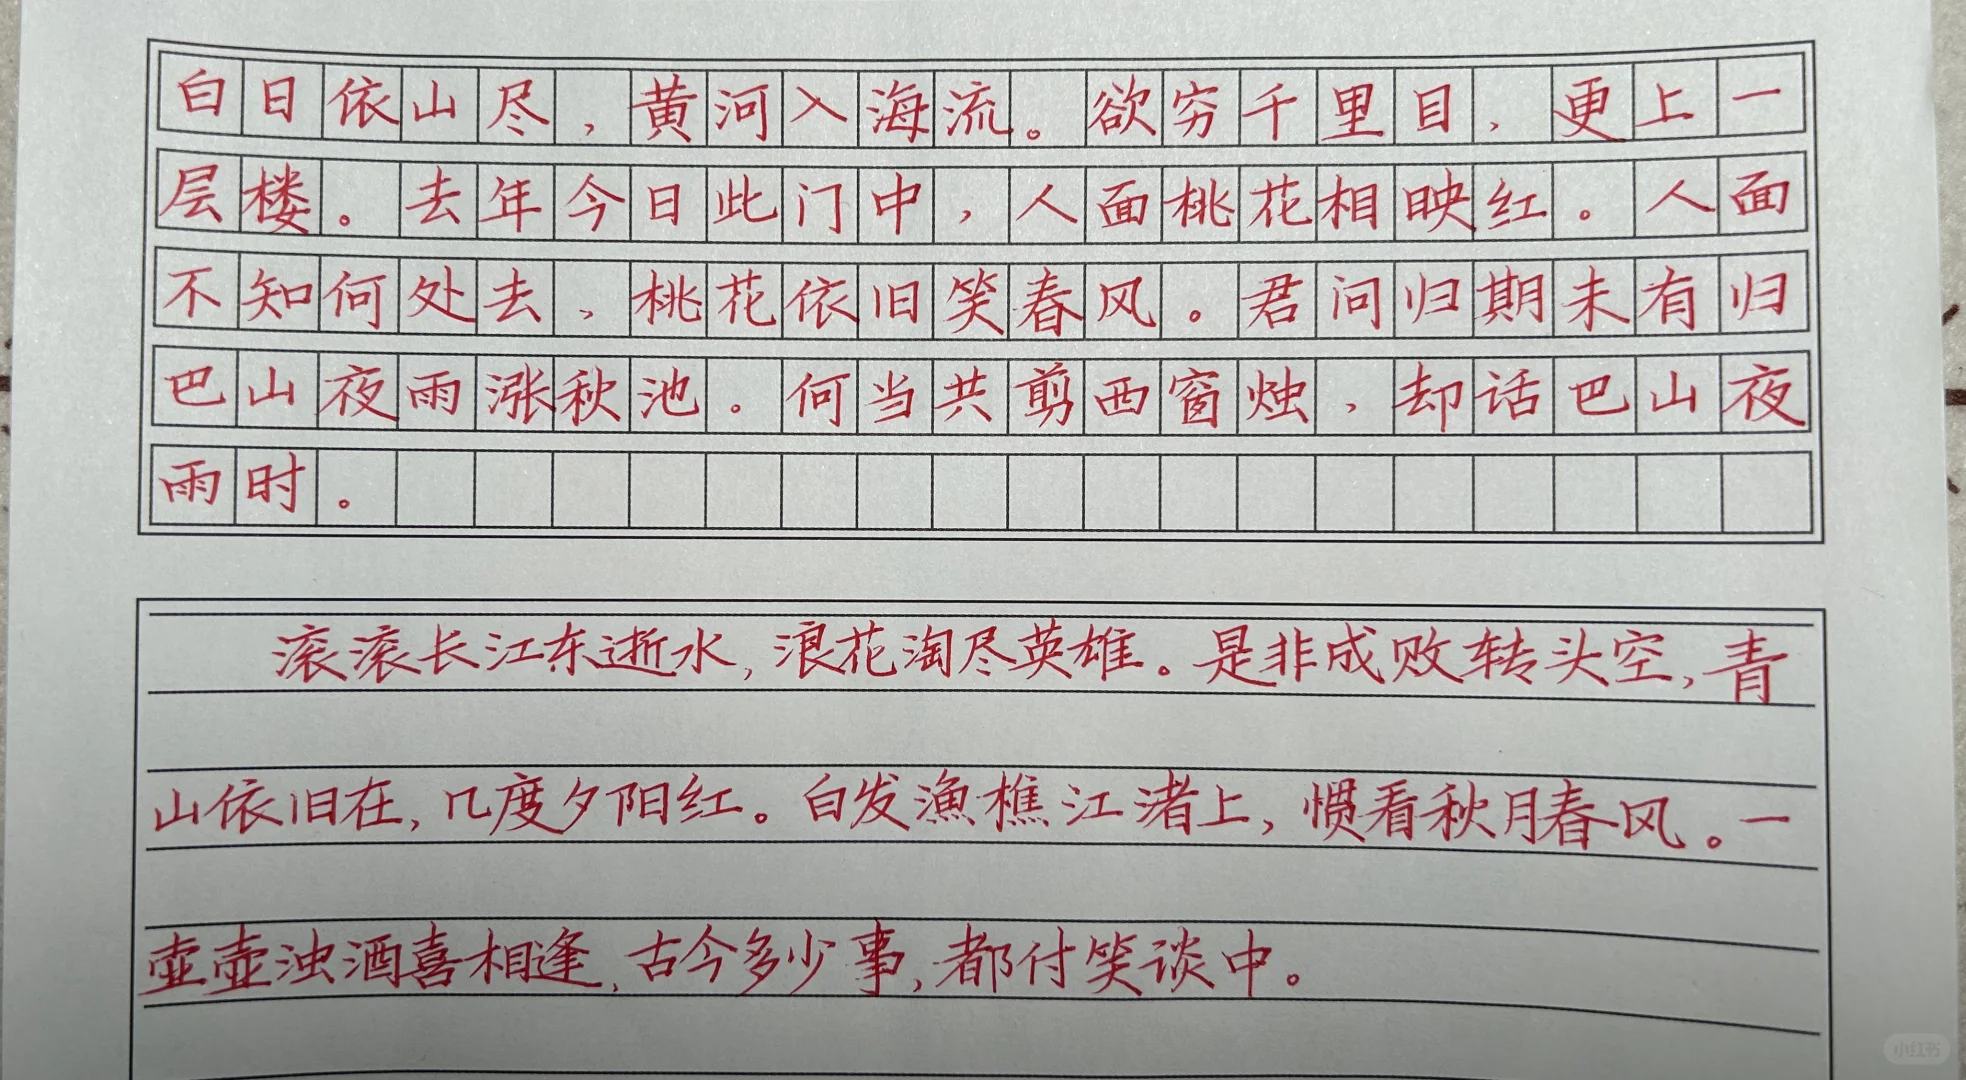 白日依山尽，黄河入海流。欲穷千里目，更上一
层楼。去年今日此门中，人面桃花相映红。人面
不知何处去，桃花依旧笑春风。君问归期未有归
巴山夜雨涨秋池。何当共剪西窗烛，却话巴山夜
雨时。
滚滚长江东逝水，浪花淘尽英雄。是非成败转头空，青
山依旧在，几度夕阳红。白发渔樵江渚上，惯看秋月春风。一
壶壶浊酒喜相逢，古今多少事，都付笑谈中。
小红书